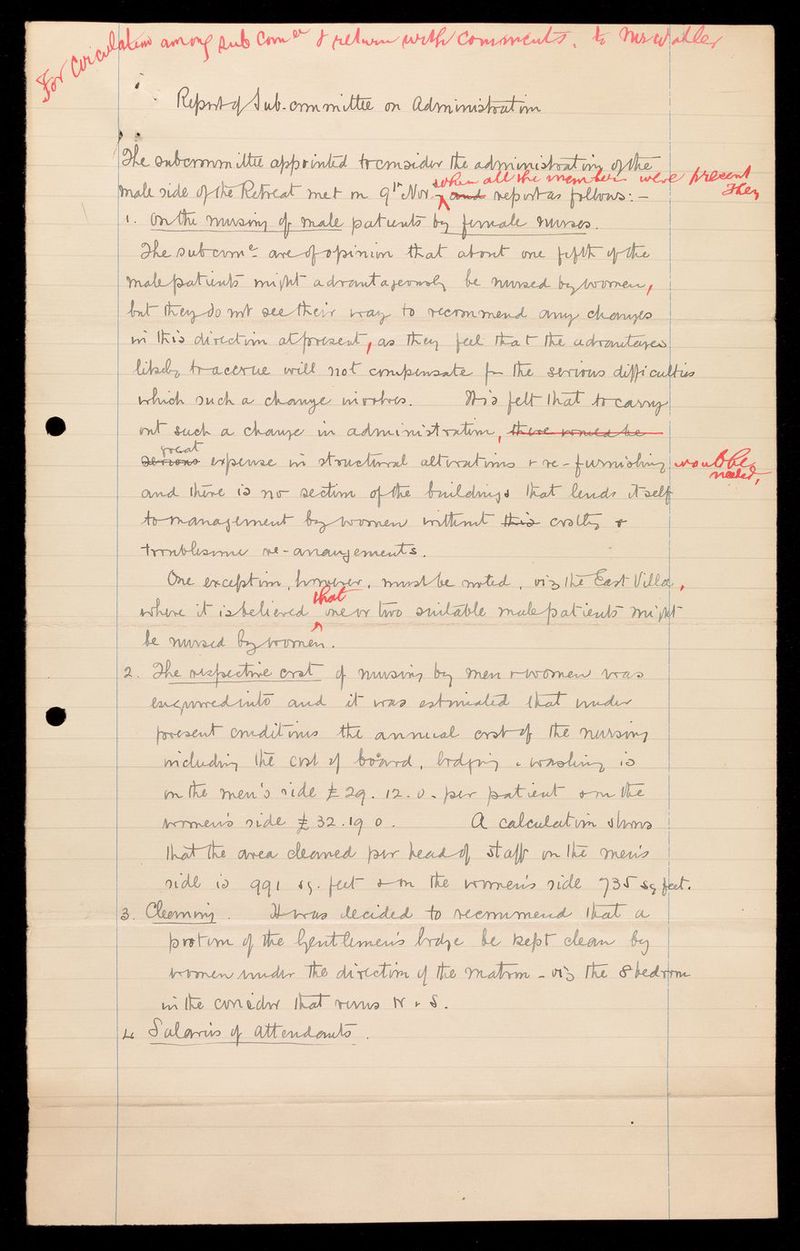 For Circulation among Sub Com^ee & return with Comments, to Mrs Wahler
Report of Sub-committee on Administration
The subcommittee appointed to consider the administration of the
when all the members were present
male side of the Retreat met on 9th Nov. and reports as follows:— They
1. On the nursing of male patients by female nurses.
The subcom^ee are of opinion that about one fifth of the
male patients might advantageously be nursed by women,
but they do not see their way to recommend any changes
in this direction at present, as they feel that the advantages
likely to accrue will not compensate for the serious difficulties
which such a change involves. It is felt that to carry
out such a change in administration, there would be
great
serious expense in structural alterations & re-furnishing would be
needed,
and there is no section of the buildings that lends itself
to management by women without this costly &
troublesome re-arrangements.
One exception, however, must be noted, viz the East Villa,
that
where it is believed one or two suitable male patients might
be nursed by women.
2. The respective cost of nursing by men & women was
enquired into and it was estimated that under
present conditions the annual cost of the nursing
including the cost of board, lodging & washing is
on the men's side £29.12.0. per patient & on the
women's side £32.19 0. A calculation shows
that the area cleaned per head of staff on the men's
side is 991 sq. feet & on the women's side 735 sq feet.
3. Cleaning. It was decided to recommend that a
portion of the Gentlemen's lodge be kept clean by
women under the direction of the Matron - viz the 8 bedroom
in the corridor that runs N & S.
4 Salaries of Attendants.